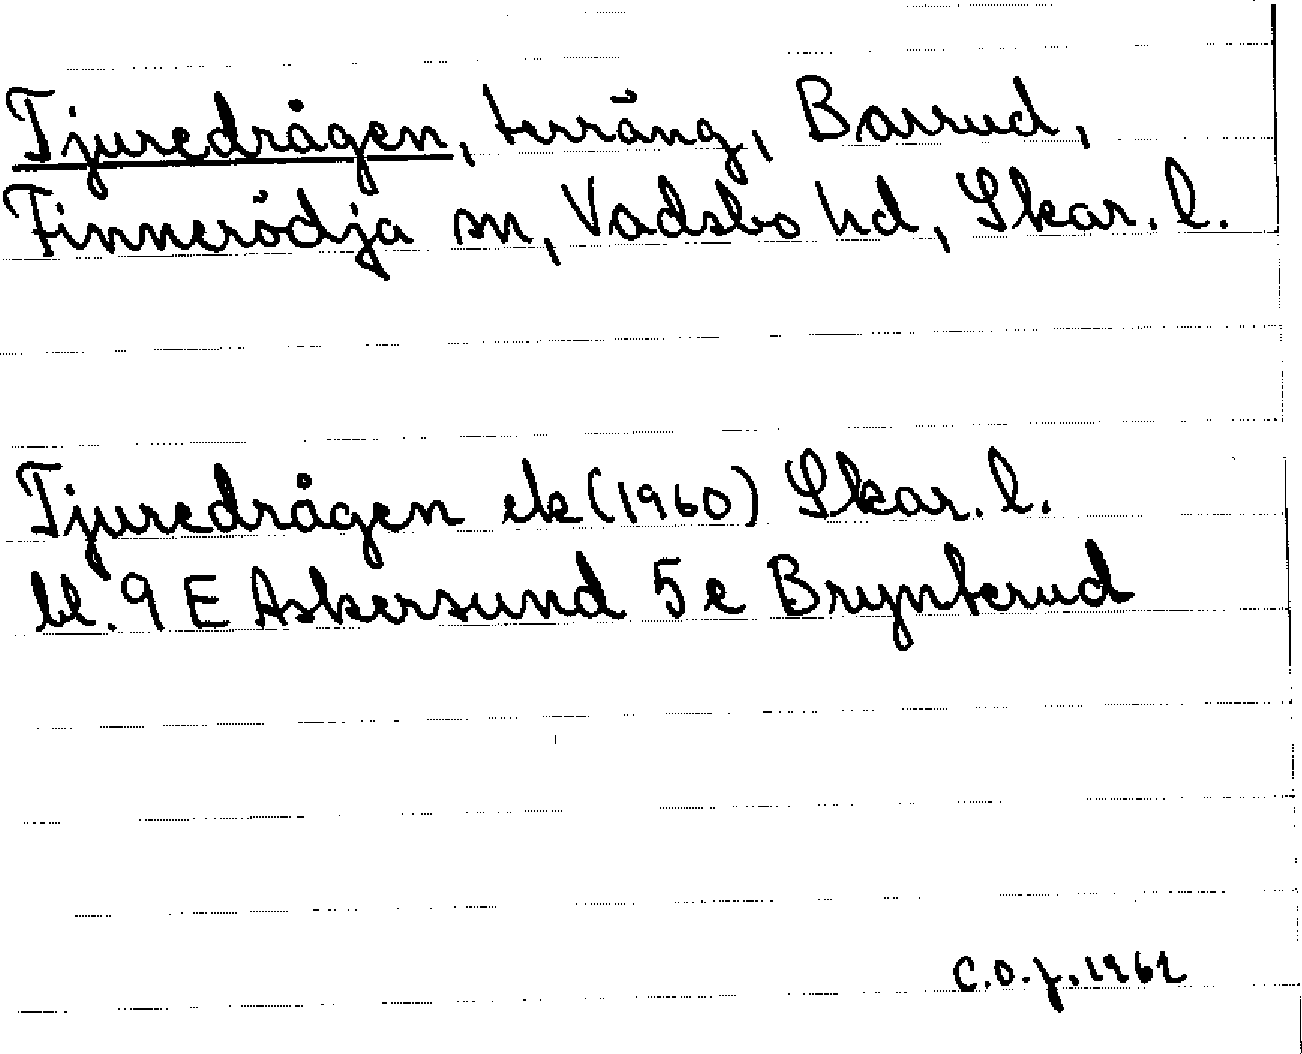 Tjuredrågen, terräng, Barrud,
Finnerödja sn, Vadsbo hd, Skar. l.
Tjuredrågen ek (1960) Skar. l.
bl. 9 E Askersund 5 e Brynterud
C.O.J. 1962